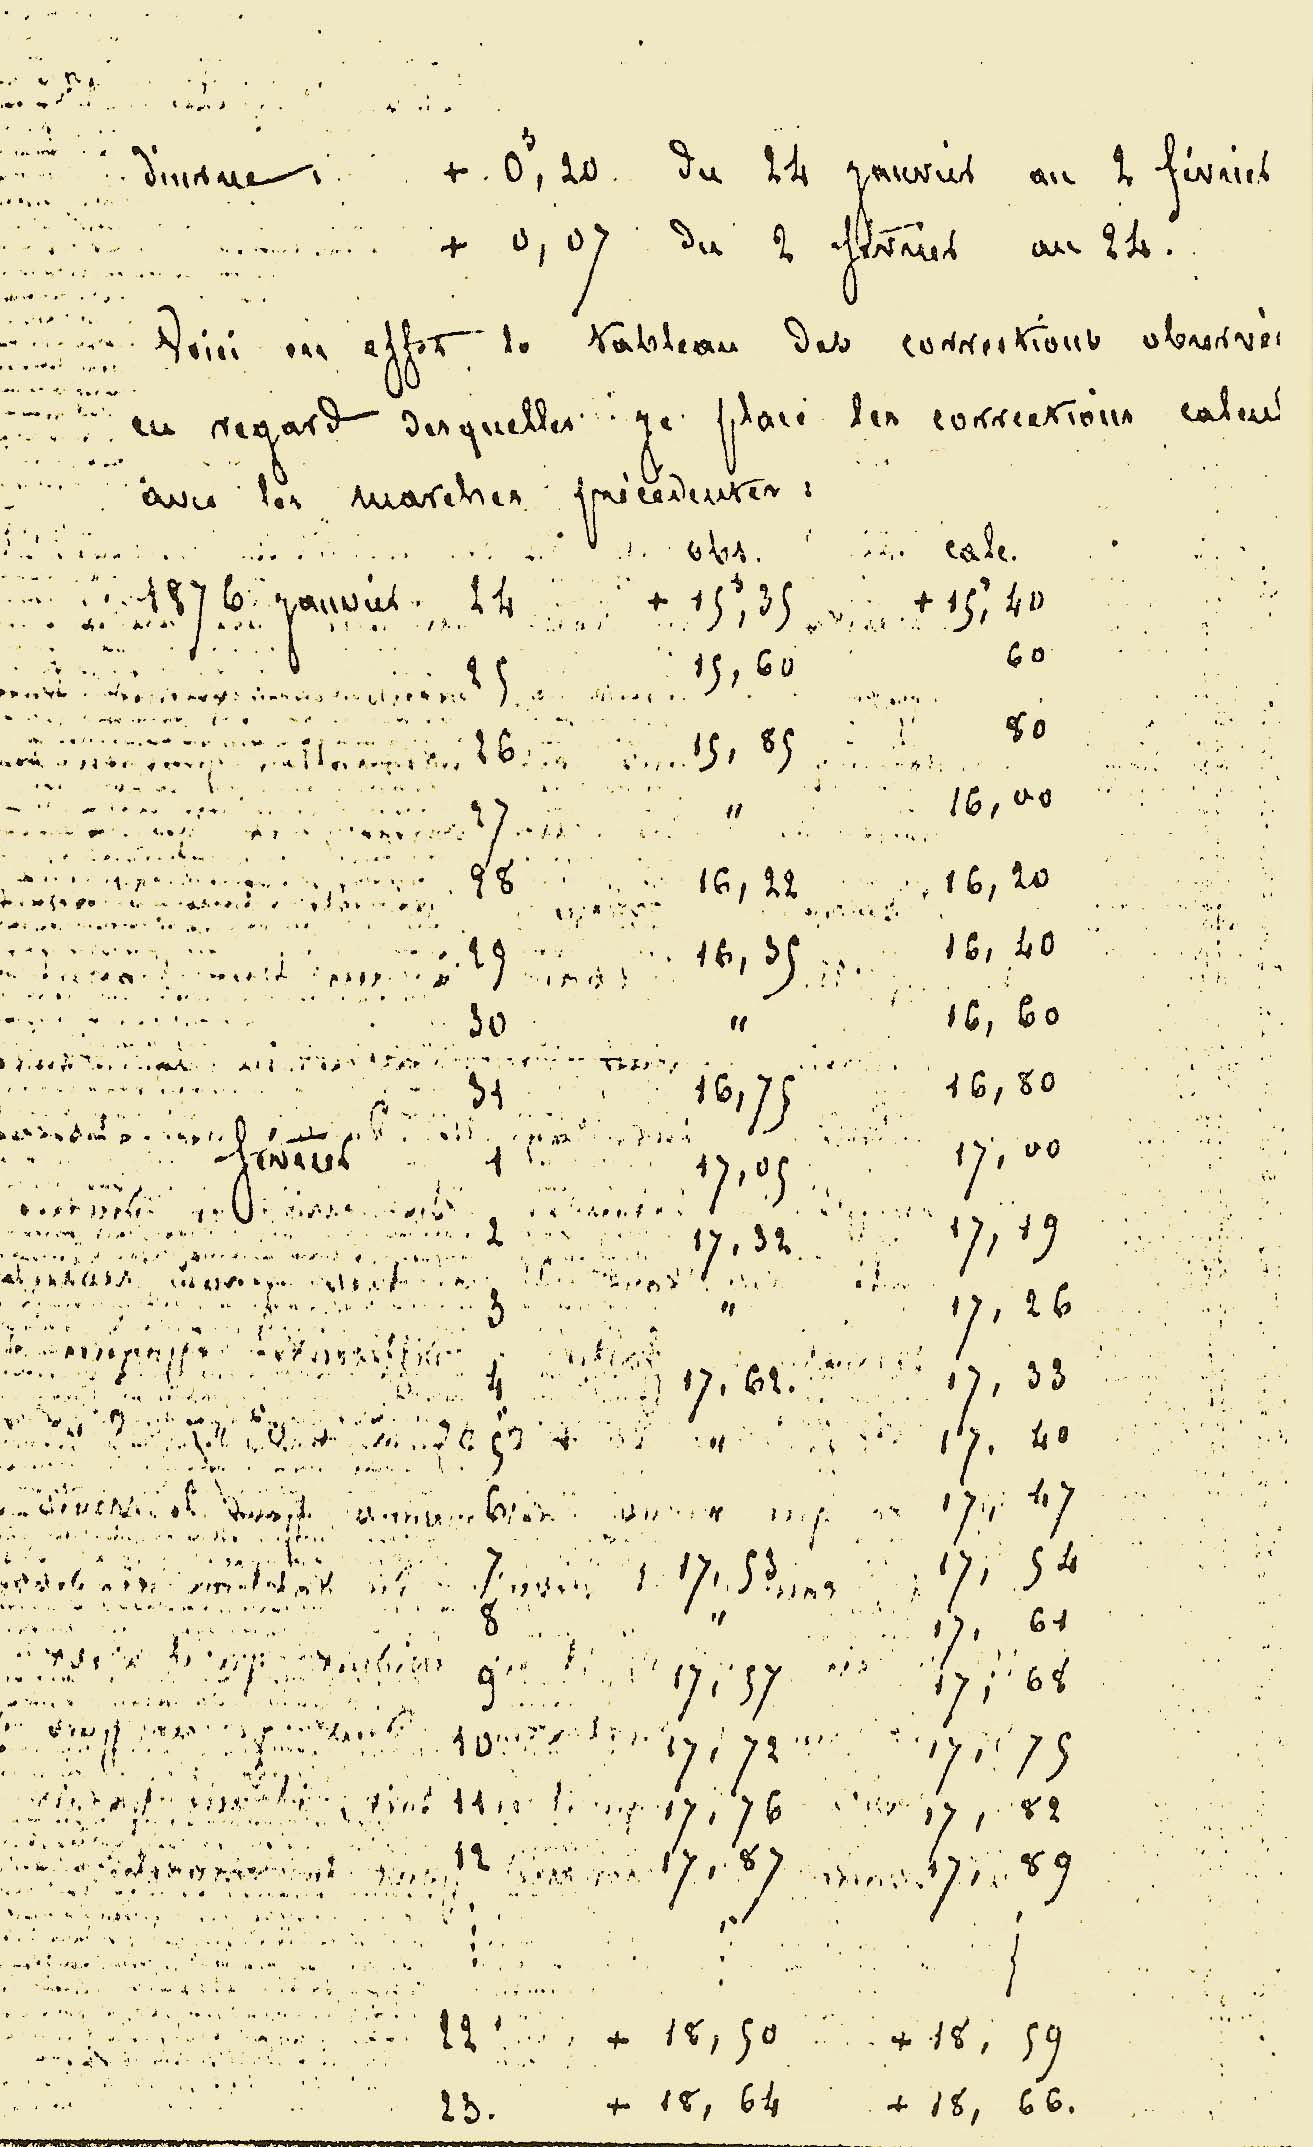 diurne : + 0ˢ,20 du 24 janvier au 2 février
+ 0,07 du 2 février au 24.
Voici en effet le tableau des corrections observé
en regard desquelles je place les corrections calcul
avec les marches précédentes :
obs. calc.
1876 janvier 24 + 15ˢ,35 + 15ˢ,40
25 15,60 60
26 15,85 80
27 " 16,00
28 16,22 16,20
29 16,35 16,40
30 " 16,60
31 16,75 16,80
février 1 17,05 17,00
2 17,32 17,19
3 " 17,26
4 17,62. 17,33
5 " 17,40
6 " 17,47
7 17,53 17,54
8 " 17,61
9 17,57 17,68
10 17,72 17,75
11 17,76 17,82
12 17,87 17,89
22 + 18,50 + 18,59
23. + 18,64 + 18,66.